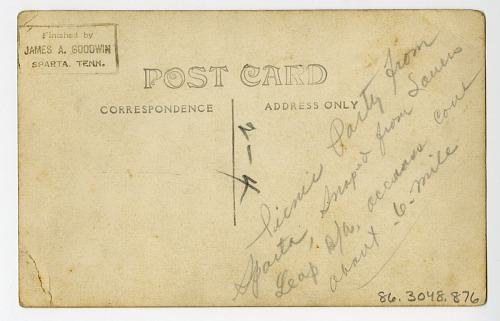 Finished by
JAMES A. GOODWIN
SPARTA, TENN.
POST CARD
CORRESPONDENCE
ADDRESS ONLY
Picnic Party from
Sparta, Snaped from Lovers
Leap accross
about -6- mile
86.3048.876